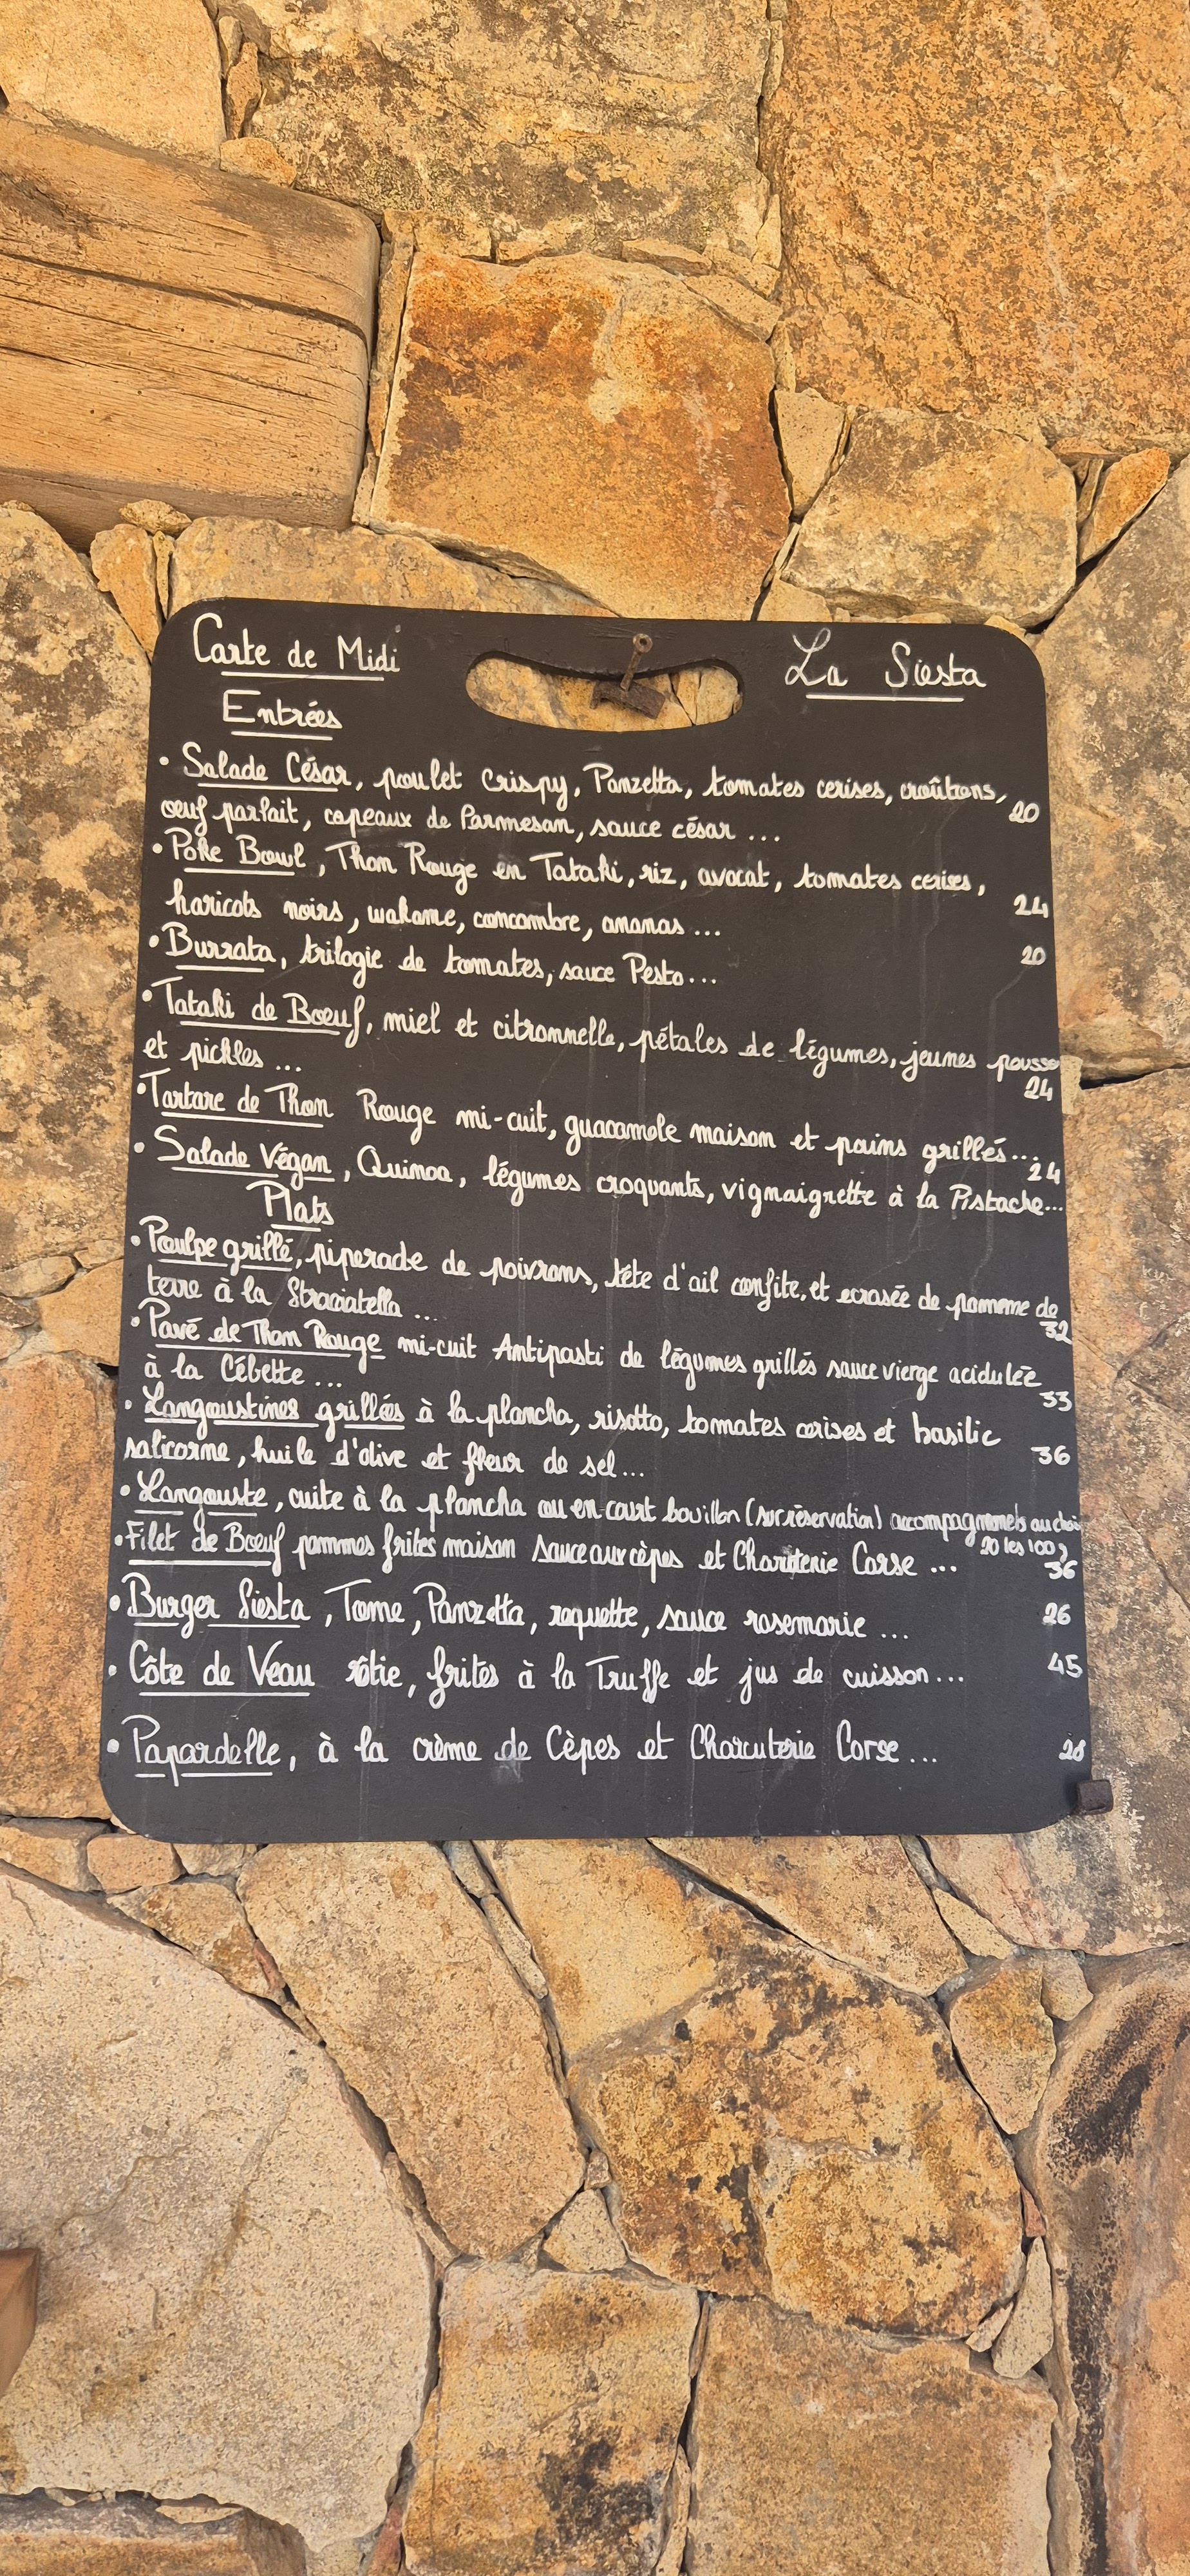 Carte de Midi
La Siesta
Entrées
• Salade César, poulet Crispy, Panzetta, tomates cerises, croûtons,
oeuf parfait, copeaux de Parmesan, sauce césar ... 20
• Poke Bowl, Thon Rouge en Tataki, riz, avocat, tomates cerises,
haricots noirs, wakame, concombre, ananas ... 24
• Burrata, trilogie de tomates, sauce Pesto... 20
• Tataki de Boeuf, miel et citronnelle, pétales de légumes, jeunes pousse
et pickles ... 24
• Tartare de Thon Rouge mi-cuit, guacamole maison et pains grillés... 24
• Salade Végan, Quinoa, légumes croquants, vignaigrette à la Pistache...
Plats
• Poulpe grillé, piperade de poivrons, tête d'ail confite, et ecrasée de pomme de
terre à la Straciatella ... 32
• Pavé de Thon Rouge mi-cuit Antipasti de légumes grillés sauce vierge acidulée
à la Cébette ... 33
• Langoustines grillées à la plancha, risotto, tomates cerises et basilic
salicorne, huile d'olive et fleur de sel... 36
• Langouste, cuite à la plancha ou en court bouillon (sur réservation) au choix
20 les 100g
• Filet de Boeuf pommes frites maison sauce aux cèpes et Charcuterie Corse ... 36
• Burger Siesta, Tome, Panzetta, roquette, sauce rosemarie ... 26
• Côte de Veau rôtie, frites à la Truffe et jus de cuisson... 45
• Papardelle, à la crème de Cèpes et Charcuterie Corse... 28